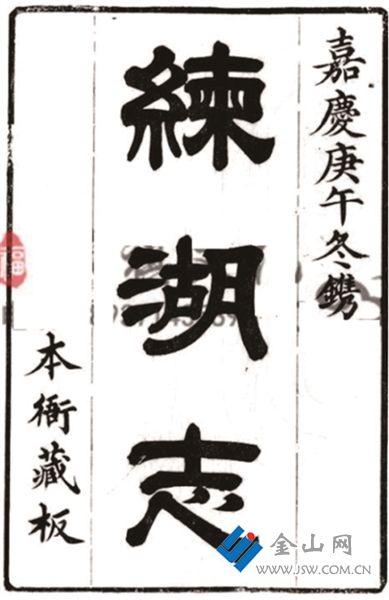 嘉慶庚午冬鐫
練湖志
本衙藏板
福
金山网
www.JSW.COM.CN